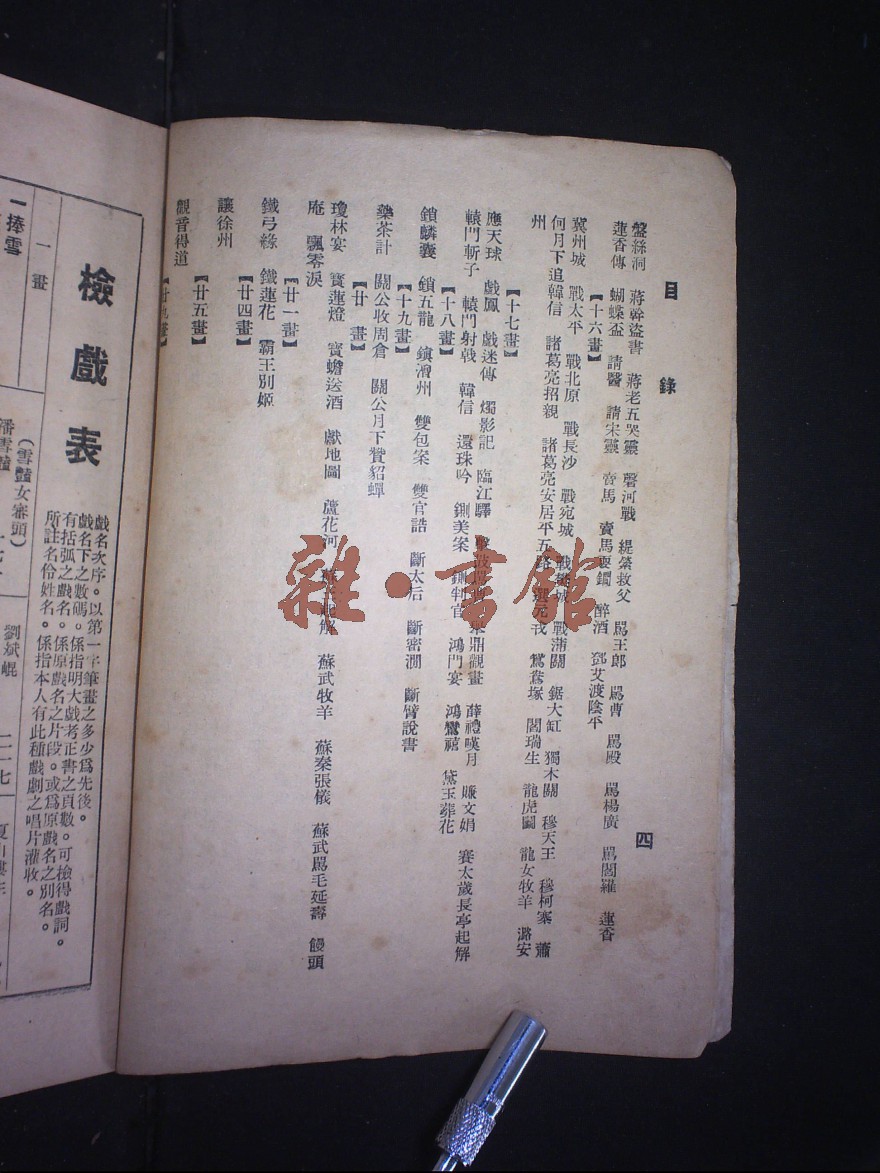 目錄
四
盤絲洞 蔣幹盜書 蔣老五哭靈 磐河戰 緹縈救父 罵王郎 罵曹 罵殿 罵楊廣 罵閻羅 蓮香
蓮香傳 蝴蝶盃 請醫 請宋靈 賣馬 賣馬耍鐧 醉酒 鄧艾渡陰平
【十六畫】
冀州城 戰太平 戰北原 戰長沙 戰宛城 戰 城 戰蒲關 鋸大缸 獨木關 穆天王 穆柯寨 蕭
何月下追韓信 諸葛亮招親 諸葛亮安居平五路 選元戎 鴛鴦塚 閻瑞生 龍虎鬭 龍女牧羊 潞安
州
【十七畫】
應天球 戲鳳 戲迷傳 燭影記 臨江驛 擊鼓罵曹 舉鼎觀畫 薛禮嘆月 賺文娟 賽太歲長亭起解
轅門斬子 轅門射戟 韓信 還珠吟 鍘美案 鍘判官 鴻門宴 鴻鸞禧 黛玉葬花
【十八畫】
鎖麟囊 鎖五龍 鎮潭州 雙包案 雙官誥 斷太后 斷密澗 斷臂說書
【十九畫】
藥茶計 關公收周倉 關公月下贊貂蟬
【廿畫】
瓊林宴 寶蓮燈 寶蟾送酒 獻地圖 蘆花河 蘇三起解 蘇武牧羊 蘇秦張儀 蘇武罵毛延壽 饅頭
庵 飄零淚
【廿一畫】
鐵弓緣 鐵蓮花 霸王別姬
【廿四畫】
讓徐州
【廿五畫】
觀音得道
【廿九畫】
檢戲表
戲名次序。以第一字筆畫之多少爲先後。
戲名下之數碼。係指明大戲考正書之頁數。可檢得戲詞。
有括弧之戲名。係原戲名之片段。或爲原戲名之別名。
所註名伶姓名。係指本人有此種戲劇之唱片灌收。
一畫
一捧雪
（雪豔女審頭）
劉斌崐
二一七
雜·書館